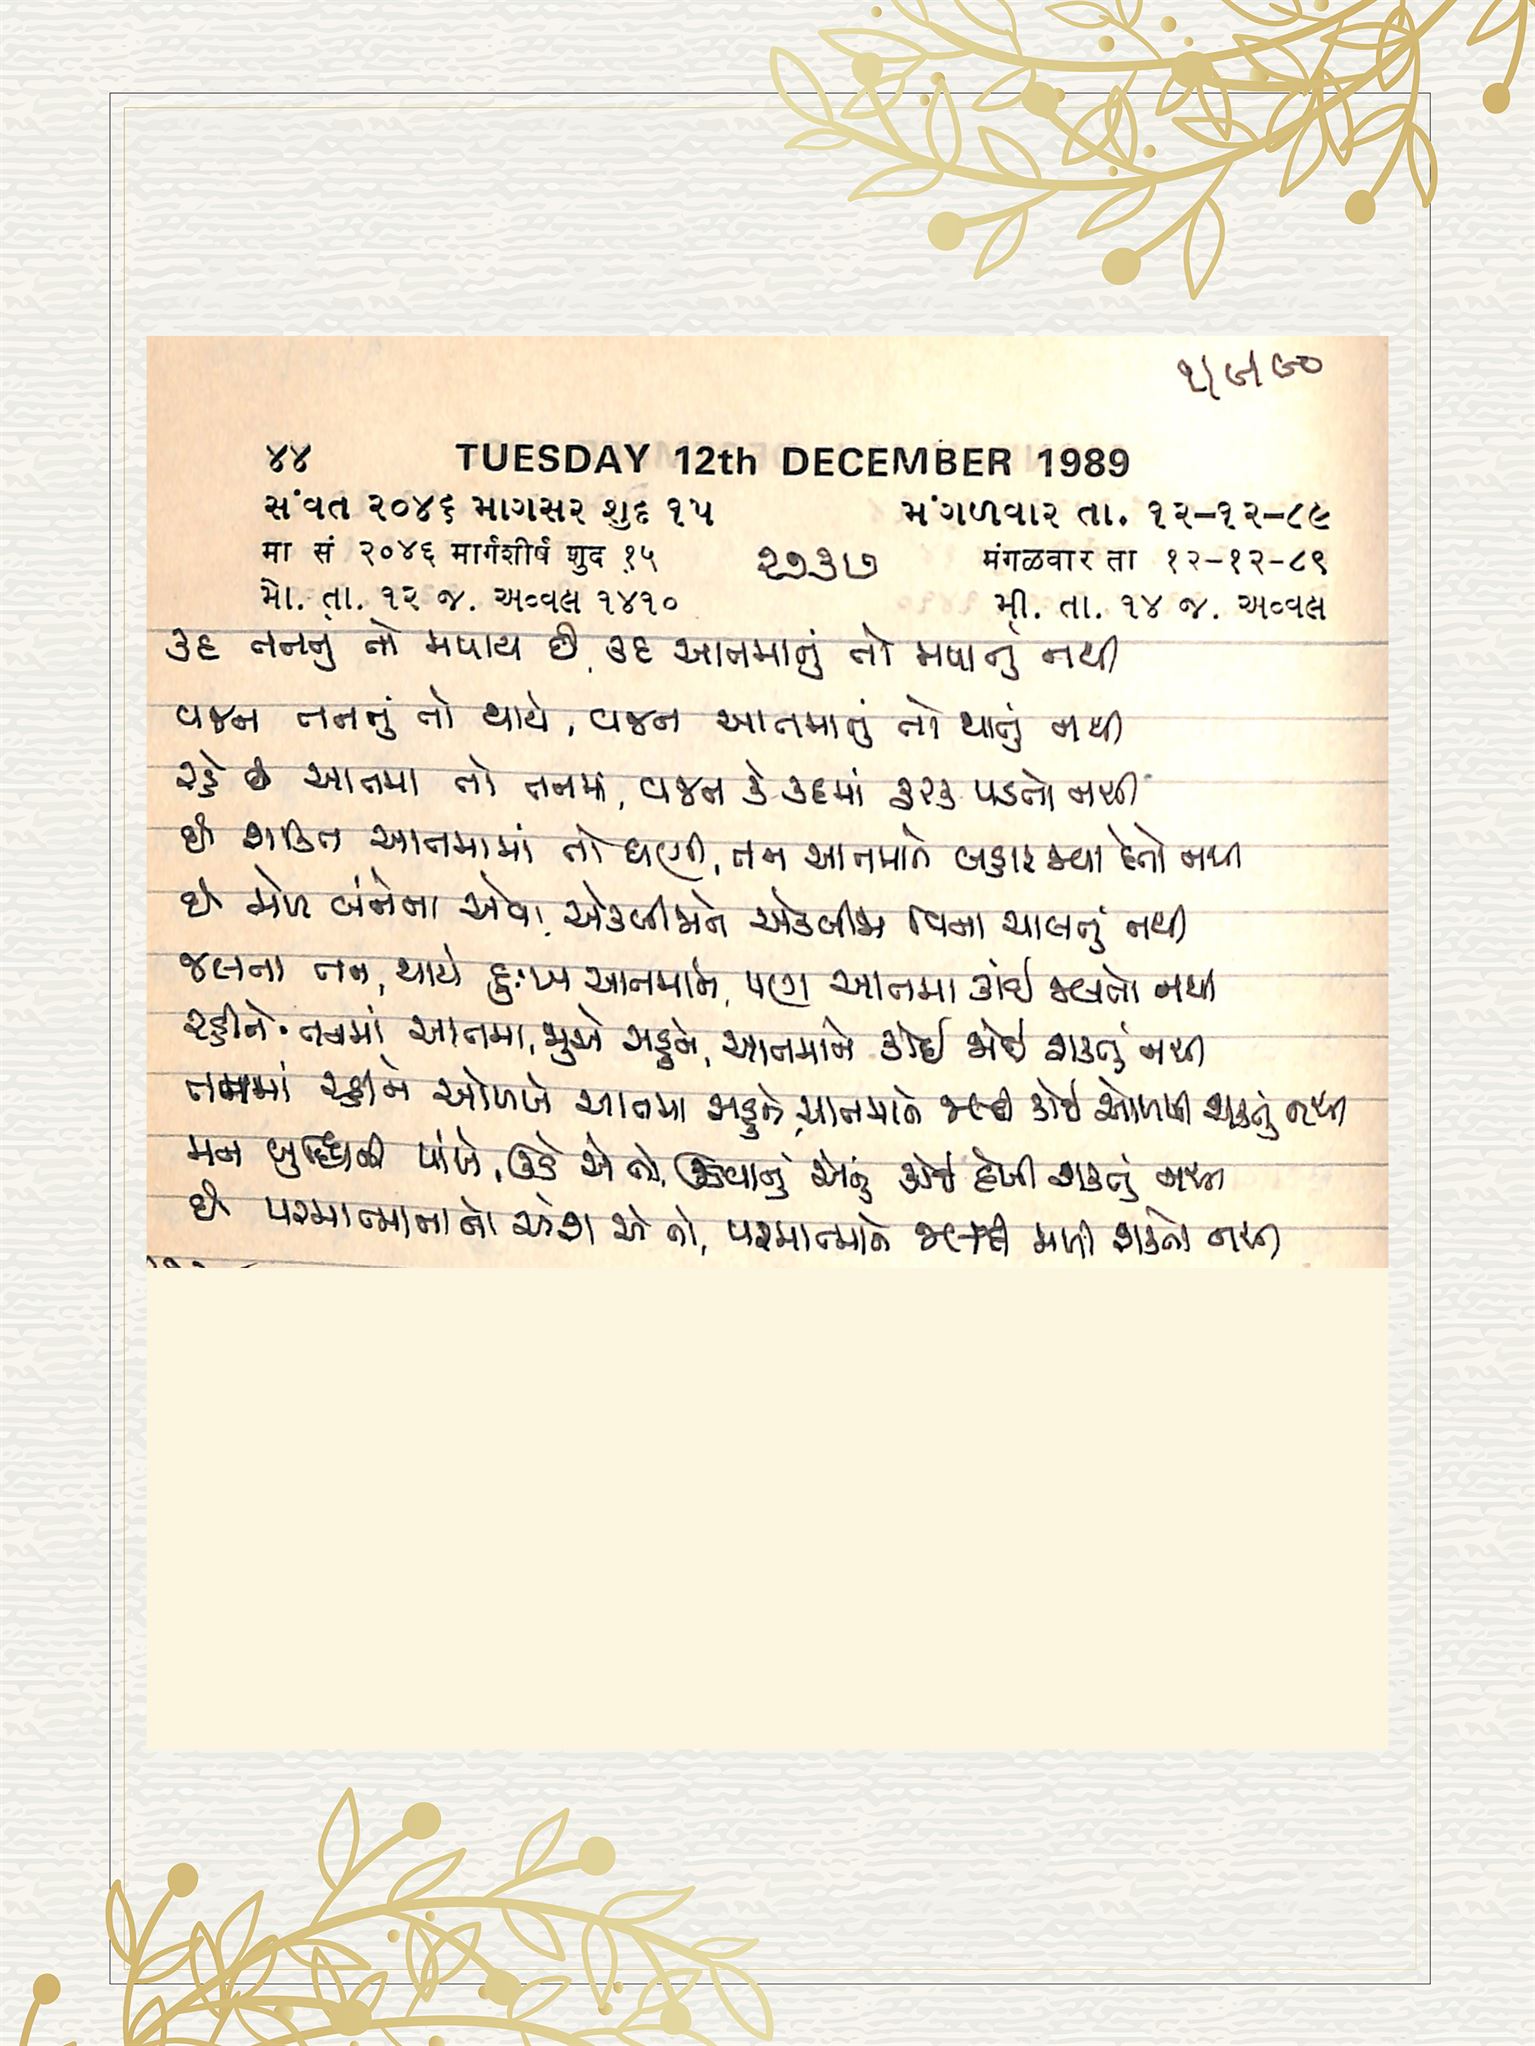 ૧/૯/૯૦
૪૪ TUESDAY 12th DECEMBER 1989
સંવત ૨૦૪૬ માગસર શુદ ૧૫ મંગળવાર તા. ૧૨-૧૨-૮૯
मा सं २०४६ मार्गशीर्ष शुद १५ ૨૭૩૭ मंगळवार ता १२-१२-८९
મો. તા. ૧૨ જ. અવ્વલ ૧૪૧૦ મી. તા. ૧૪ જ. અવ્વલ
કદ તનનું તો મપાય છે, કદ આતમાનું તો મપાતું નથી
વજન તનનું તો થાયે, વજન આતમાનું તો થાતું નથી
રહે છે આતમા તો તનમાં, વજન કે કદમાં ફરક પડતો નથી
છે શક્તિ આતમામાં તો ઘણી, તન આતમાને બહાર જવા દેતો નથી
છે મેળ બંનેના એવા, એકબીજાને એકબીજા વિના ચાલતું નથી
જલતા તન, થાયે દુઃખ આતમાને, પણ આતમા કાંઈ જલતો નથી
રહીને તનમાં આતમા, જુએ સહુને, આતમાને કોઈ જોઈ શકતું નથી
તનમાં રહીને ઓળખે આતમા સહુને, આતમાને જલ્દી કોઈ ઓળખી શકતું નથી
મન બુદ્ધિની પાંખે, ઊડે એ તો, ઊડવાનું એનું કોઈ દેખી શકતું નથી
છે પરમાત્માનાનો અંશ એ તો, પરમાત્માને જલ્દી મળી શકતો નથી